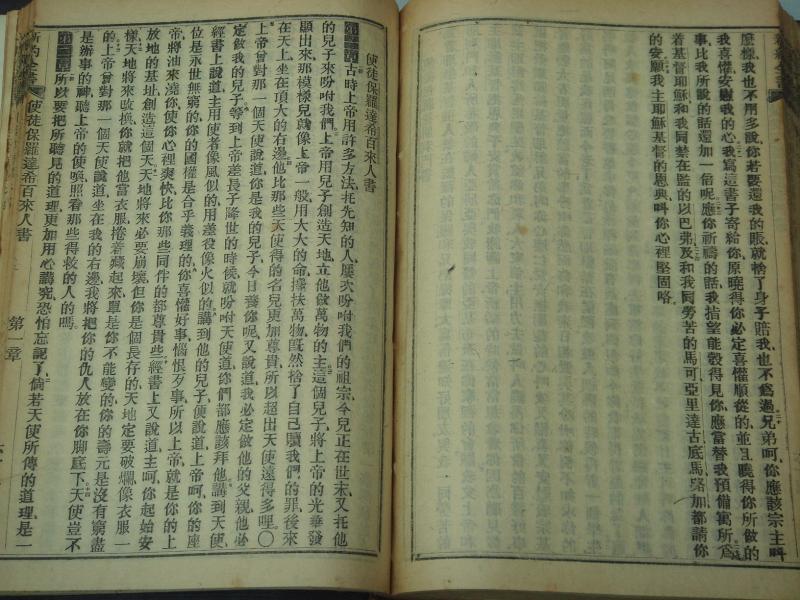 麽樣、我也不用多說、你若要還我的賬、就捨了身子賠我、也不爲過、兄弟呵、你應該宗主呌
我喜懽安慰我的心、我寫這書子寄給你、原曉得你必定喜懽順從的、並且曉得你所做的
事、比我所說的話還加一倍呢、應你祈禱的話、我指望能彀得見你、應當替我預備寓所、爲
着基督耶穌和我同禁在監的以巴弗及和我同勞苦的馬可亞里達古底馬路加都請你
的安、願我主耶穌基督的恩典、呌你心裡堅固咯、
使徒保羅達希百來人書
第一章 古時上帝用許多方法、托先知的人、屢次吩咐我們的祖宗、今兒正在世末、又托他
的兒子來吩咐我們、上帝用兒子創造天地、立他做萬物的主、這個兒子、將上帝的光華發
顯出來、那模樣兒就像上帝一般、用大大的命、擄扶萬物、既然捨了自己、贖我們的罪、後來
在天上坐在頂大的右邊、他比那些天使得的名兒更加尊貴、所以超出天使遠得多哩、〇
上帝曾對那一個天使說道、你是我的兒子、今日養你呢、又說道、我必定做他的父親、他必
定做我的兒子、等到上帝差長子降世的時候、就吩咐天使道、你們都應該拜他、講到天使、
經書上說道、主用使者像風似的、用差役像火似的、講到他的兒子、便說道、上帝呵、你的座
位是永世無窮的、你的國權是合乎義理的、你喜懽好事、惱恨歹事、所以上帝、就是你的上
帝、將油來澆你、使你心裡爽快、比你那些同伴的都尊貴些、經書上又說道、主呵、你起始安
放地的基址、創造這個天、天地將來必要崩壞、但你是個長存的、天地定要破爛、像衣服一
樣、天地將來收換、你就把他當衣服捲着藏起來、單是你不能變的、你的壽元是沒有窮盡
的、上帝曾對那一個天使說道、坐在我的右邊、我將把你的仇人放在你脚底下、天使豈不
是辦事的神、聽上帝的使喚、照看那些得救的人的嗎、
第二章 所以要把所聽見的道理、更加用心講究、恐怕忘記了、倘若天使所傳的道理是一
新約全書 使徒保羅達希百來人書 第一章